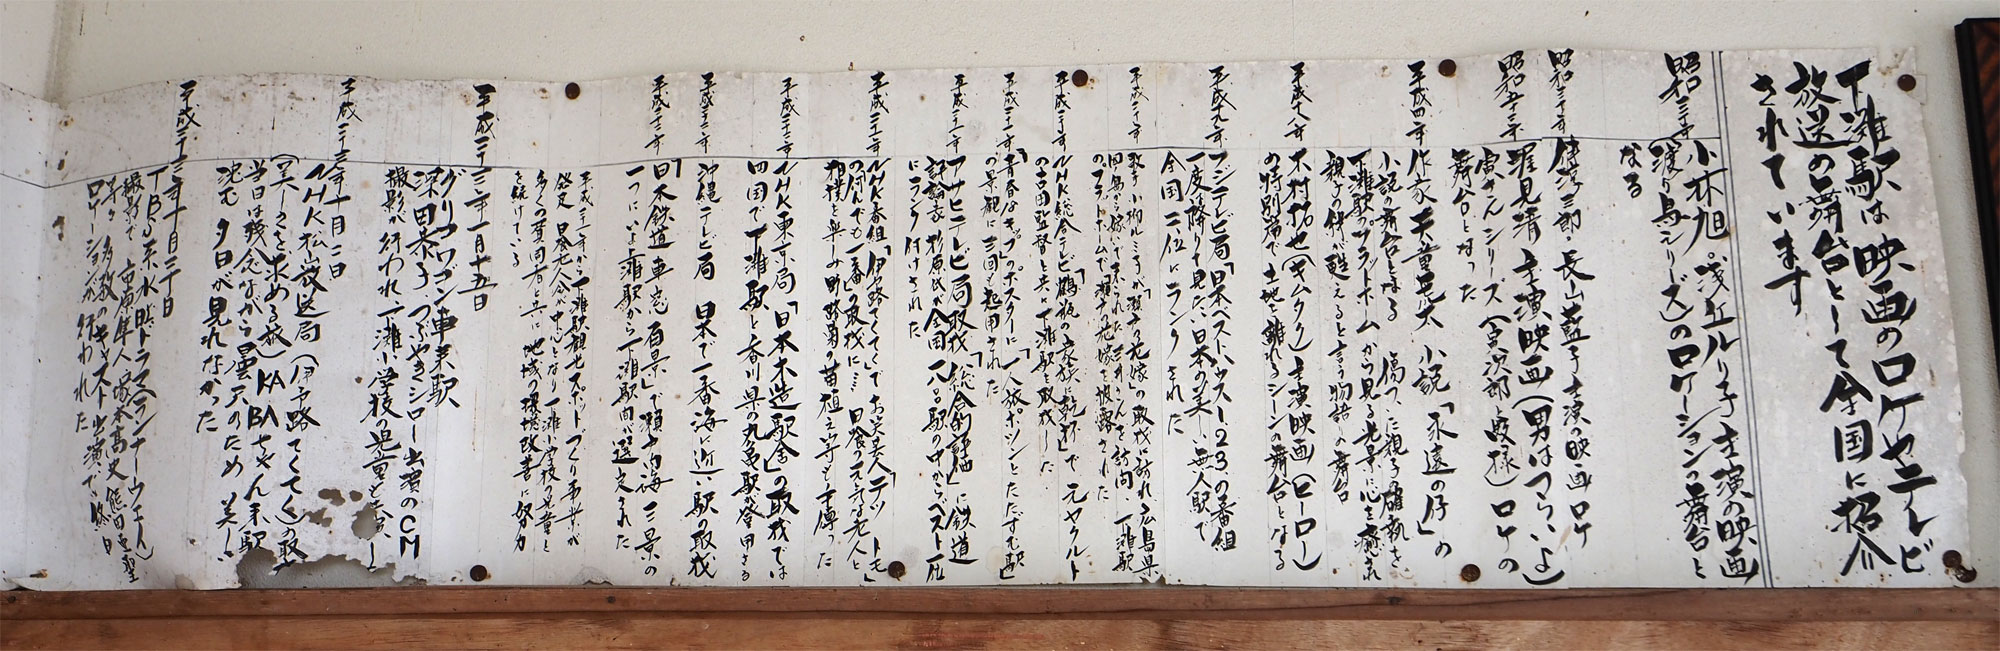 下灘駅は映画のロケやテレビ
放送の舞台として全国に招介
されています
昭和三十年
小林旭・浅丘ルリ子主演の映画
(渡り鳥シリーズ)のロケーションの舞台と
なる
昭和三十年
伴淳三郎・長山藍子主演の映画ロケ
昭和五十三年
渥見清主演映画(男はつらいよ)
寅さんシリーズ(寅次郎と殿様)ロケの
舞台となった
平成四年
作家天童荒太 小説「永遠の仔」の
小説の舞台となる 傷ついた親子の確執を
下灘駅のプラットホームから見る光景に心を癒され
親子の絆が甦えると言う物語の舞台
平成十八年
木村拓也(キムタク)主演映画(ヒーロー)
の特別篇で土地を離れるシーンの舞台となる
平成十九年
フジテレビ局「日本ベストハウス123の番組
一度は降りて見たい日本の美しい無人駅で
全国二位にランクされた
平成二十年
歌手小柳ルミ子が「瀬戸の花嫁」の取材に訪れ広島県
のプラットホームで瀬戸の花嫁を披露された
平成二十年
NHK総合テレビ「鶴瓶の家族に乾杯」で 元ヤクルト
の古田監督と共に下灘駅を取材した
平成二十一年
「青春18キップ」のポスターに「一人旅ポツンとたたずむ駅」
の景観に三回も起用された
平成二十一年
アサヒテレビ局取材「総合的評価」に鉄道
評論家 杉原氏が全国 八百駅の中からベスト一位
にランク付けされた
平成二十一年
NHK番組「伊予路てくてく」でお笑芸人「テツ and トモ」
の「何んでも一番」の取材に… 日喰の元気な老人と
相撲を楽しみ野路菊の苗植え等を手傳った
平成二十二年
NHK東京局「日本木造駅舎」の取材では
四国で下灘駅と香川県の丸亀駅が登用さる
平成二十二年
沖縄テレビ局 日本で一番海に近い駅の取材
平成二十二年
「日本鉄道車窓百景」で瀬戸内海三景の
一つにいよ上灘駅から下灘駅間が選定された
平成二十年から下灘駅観光スポットづくり事業が
発足 日喰老人会が中心となり下灘小学校の児童と
多くの賛同者と共に地域の環境改善に努力
を続けている
平成二十三年一月十五日
グリーンワゴン車来駅
深田恭子、つぶやきシロー出演のCM
撮影が行われ下灘小学校の児童と
平成二十三年十月二日
NHK松山放送局(伊予路てくてく)の取
(美しさを求める旅)KABAちゃん来駅
当日は残念ながら曇天のため美しい
沈む夕日が見れなかった
平成二十三年十月二十日
TBS系 水戸岡 ドラマ「ランナーウェイ」
撮影で 市原隼人 塚本高史 熊田聖亜
等々 多数のキャスト出演で終日
ロケーションが行われた